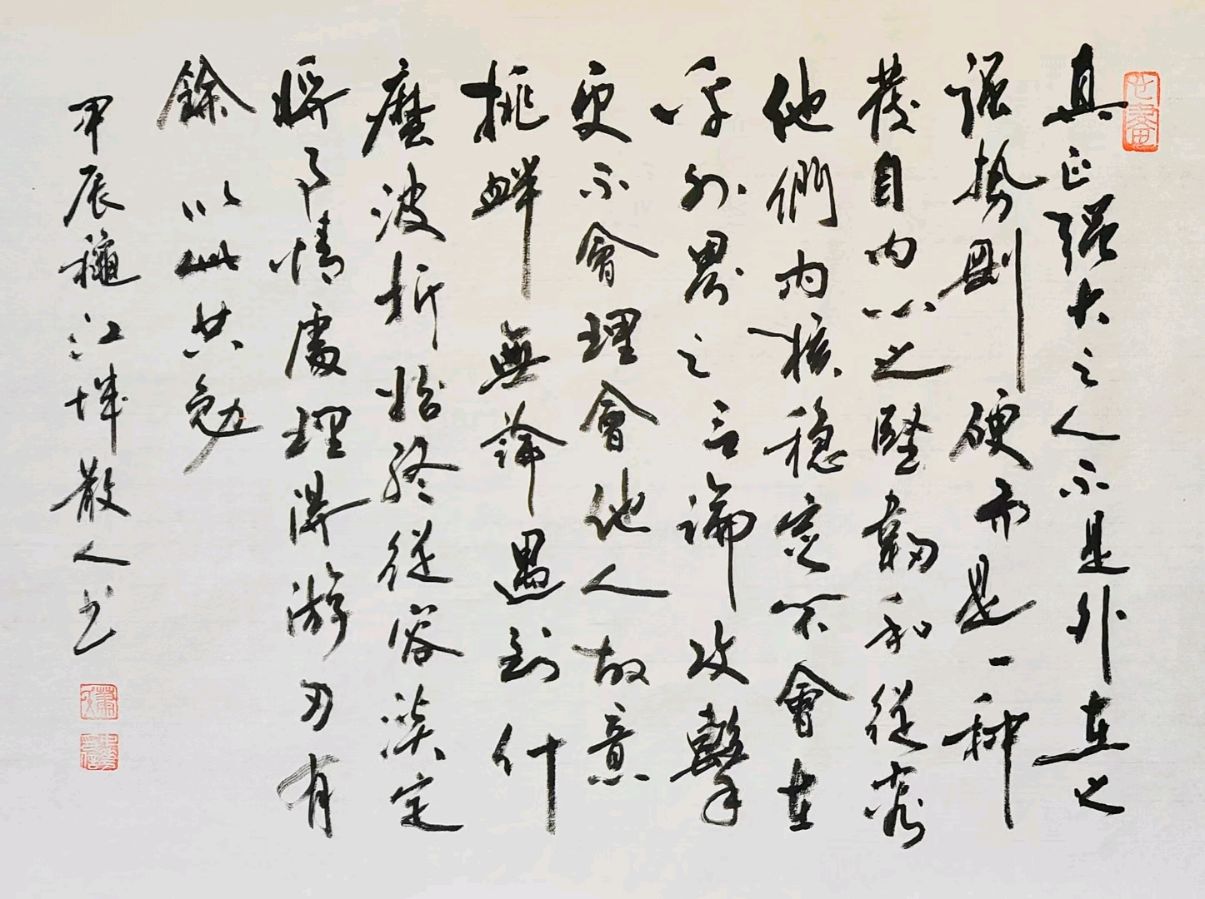 真正强大之人不是外在之
强势剛硬而是一种
發自内心之堅韌和從容
他們内核稳定不會在
乎外界之言論攻擊
更不會理會他人故意
挑衅無論遇到什
麼波折始終從容淡定
將事情處理得游刃有
餘 以此共勉
甲辰穐江城散人书